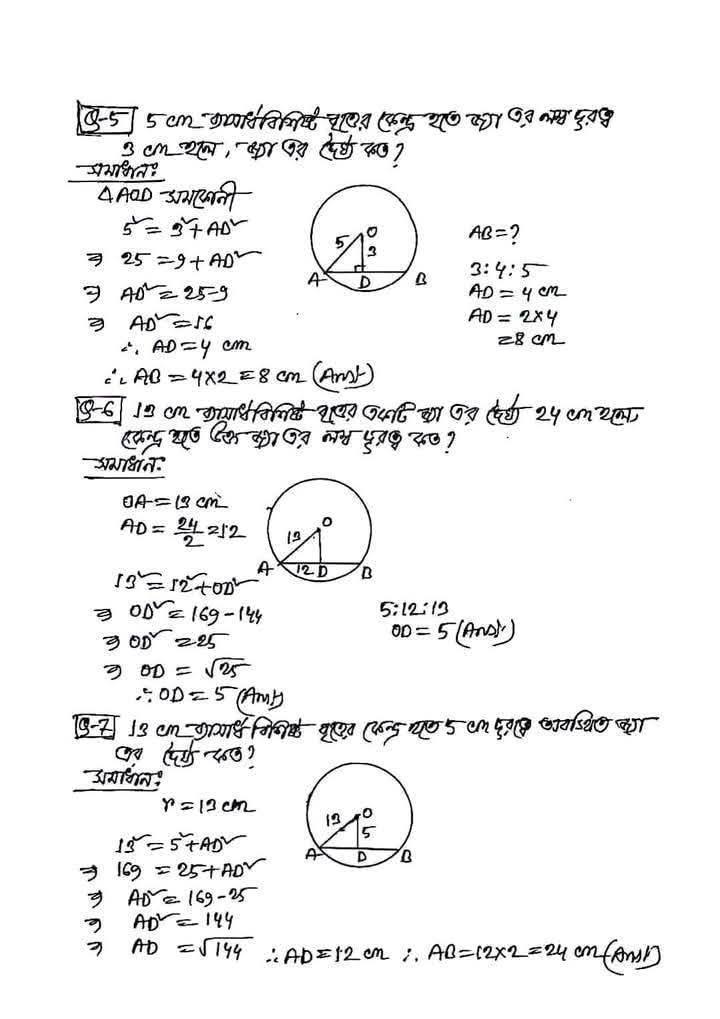 Q-5 5 cm ব্যাসার্ধ বিশিষ্ট বৃত্তের কেন্দ্র হতে জ্যা এর লম্ব দূরত্ব
3 cm হলে, জ্যা এর দৈর্ঘ্য কত?
সমাধান:
△AOD সমকোনী
5² = 3² + AD²
⇒ 25 = 9 + AD²
⇒ AD² = 25-9
⇒ AD² = 16
∴ AD = 4 cm
∴ AB = 4×2 = 8 cm (Ans)
O
5
3
A
D
B
AB = ?
3:4:5
AD = 4 cm
AD = 2×4
= 8 cm
Q-6 13 cm ব্যাসার্ধ বিশিষ্ট বৃত্তের একটি জ্যা এর দৈর্ঘ্য 24 cm হলে,
কেন্দ্র হতে উক্ত জ্যা এর লম্ব দূরত্ব কত?
সমাধান:
OA = 13 cm
AD = 24/2 = 12
13² = 12² + OD²
⇒ OD² = 169-144
⇒ OD² = 25
⇒ OD = √25
∴ OD = 5 (Ans)
O
13
A
12
D
B
5:12:13
OD = 5 (Ans)
Q-7 13 cm ব্যাসার্ধ বিশিষ্ট বৃত্তের কেন্দ্র হতে 5 cm দূরত্বে অবস্থিত জ্যা
এর দৈর্ঘ্য কত?
সমাধান:
r = 13 cm
13² = 5² + AD²
⇒ 169 = 25 + AD²
⇒ AD² = 169-25
⇒ AD² = 144
⇒ AD = √144 ∴ AD = 12 cm ∴ AB = 12×2 = 24 cm (Ans)
O
13
5
A
D
B